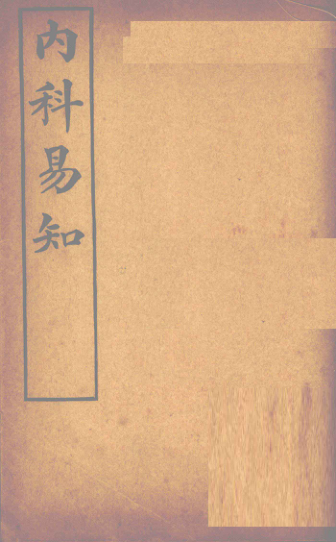 内科易知